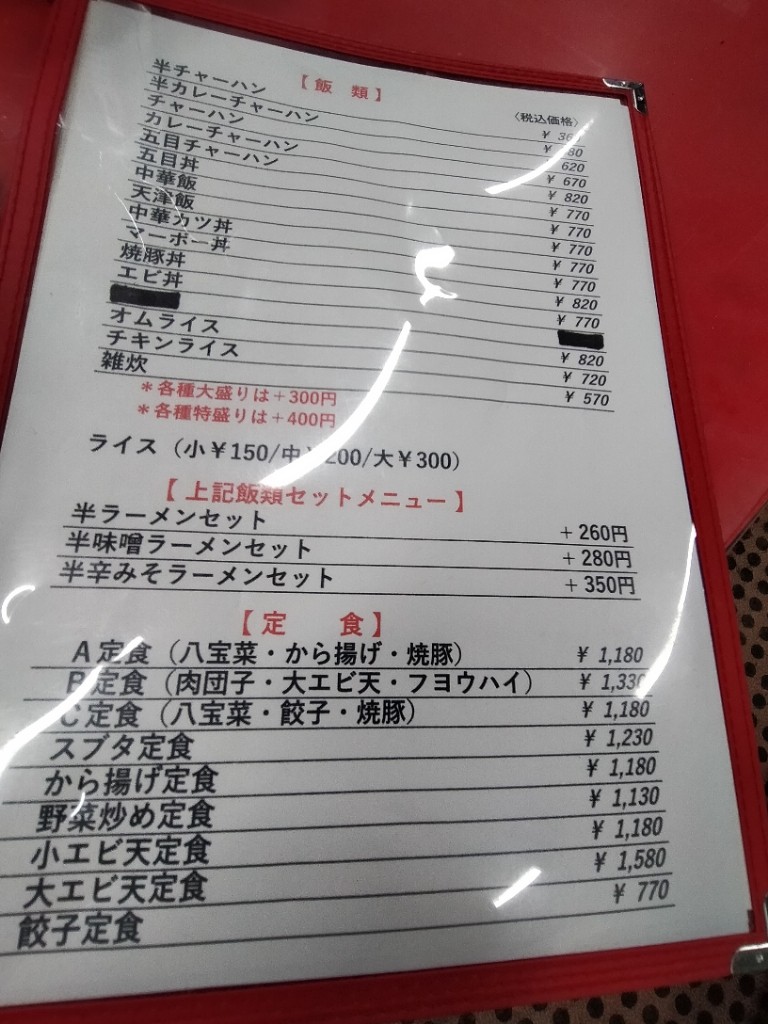 【飯 類】
〈税込価格〉
半チャーハン
半カレーチャーハン
チャーハン ¥ 620
カレーチャーハン ¥ 670
五目チャーハン ¥ 820
五目丼 ¥ 770
中華飯 ¥ 770
天津飯 ¥ 770
中華カツ丼 ¥ 770
マーボー丼 ¥ 770
焼豚丼 ¥ 820
エビ丼 ¥ 770
オムライス ¥ 820
チキンライス ¥ 720
雑炊 ¥ 570
＊各種大盛りは＋300円
＊各種特盛りは＋400円
ライス（小¥150/中¥200/大¥300）
【上記飯類セットメニュー】
半ラーメンセット ＋260円
半味噌ラーメンセット ＋280円
半辛みそラーメンセット ＋350円
【定 食】
A定食（八宝菜・から揚げ・焼豚） ¥ 1,180
B定食（肉団子・大エビ天・フヨウハイ） ¥ 1,330
C定食（八宝菜・餃子・焼豚） ¥ 1,180
スブタ定食 ¥ 1,230
から揚げ定食 ¥ 1,180
野菜炒め定食 ¥ 1,130
小エビ天定食 ¥ 1,180
大エビ天定食 ¥ 1,580
餃子定食 ¥ 770